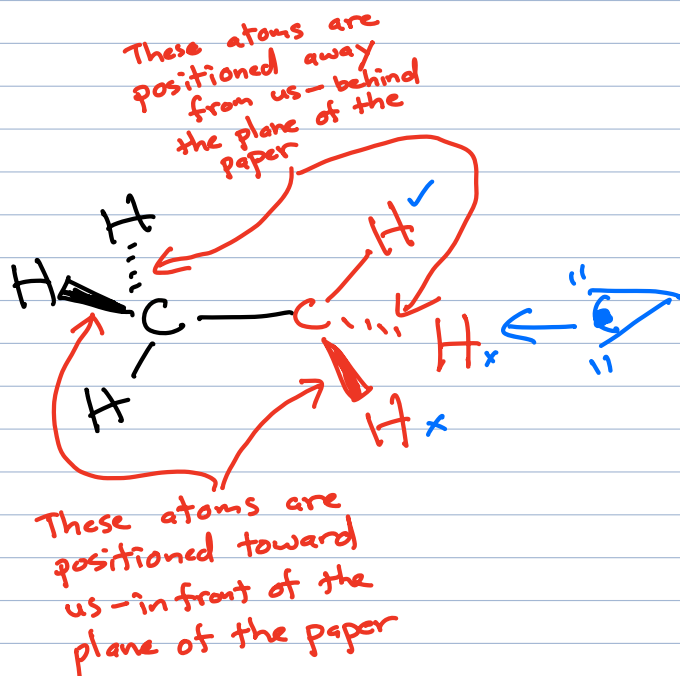 These atoms are
positioned away
from us - behind
the plane of the
paper
H
H
H
C
C
H
H x
H x
These atoms are
positioned toward
us - in front of the
plane of the paper